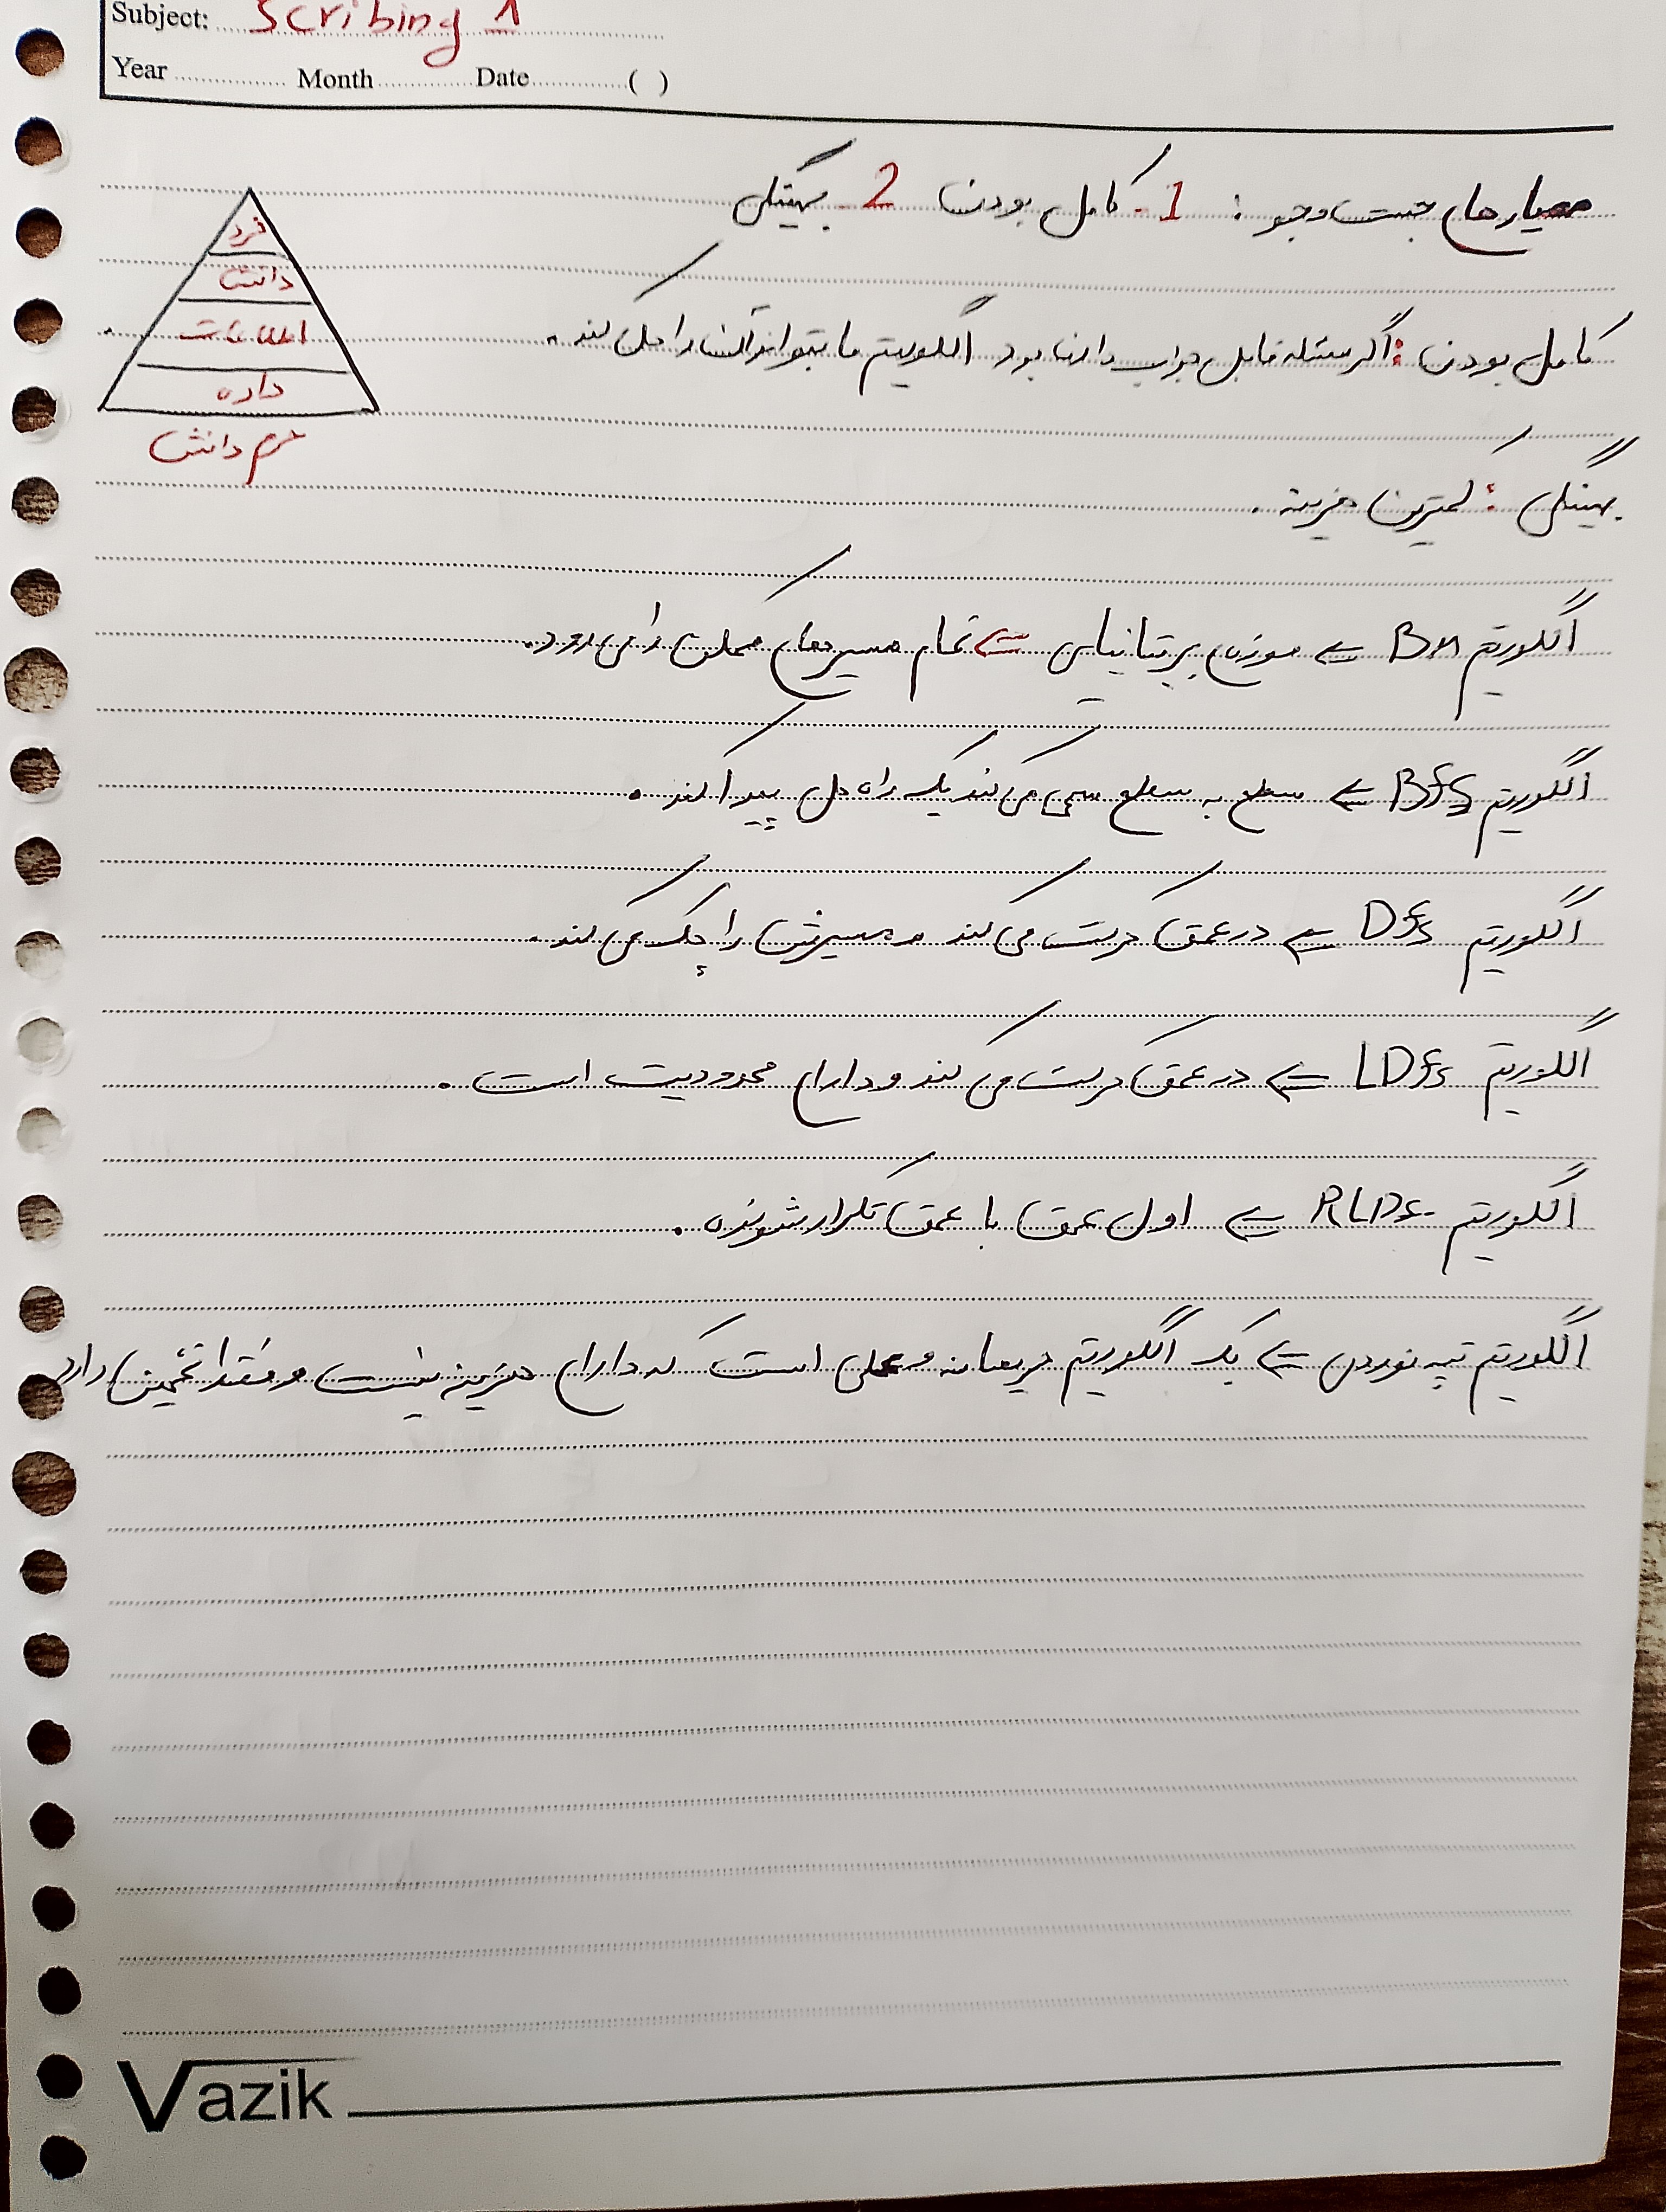 Subject: Scribing 1
Year Month Date ( )
معیارهای جست و جو : 1- کامل بودن 2- بهینگی
خرد
دانش
اطلاعات
داده
هرم دانش
کامل بودن : اگر مسئله قابل جواب دادن بود الگوریتم ما بتواند آن را حل کند .
بهینگی : کمترین هزینه .
الگوریتم Bm ⇐ موزه‌ی بریتانیایی ⇐ تمام مسیرهای ممکن را می‌رود.
الگوریتم Bfs ⇐ سطح به سطح سعی می‌کند یک راه حل پیدا کند .
الگوریتم Dfs ⇐ در عمق حرکت می‌کند و مسیرش را چک می‌کند .
الگوریتم LDfs ⇐ در عمق حرکت می‌کند و دارای محدودیت است .
الگوریتم ⇐ اول عمق با عمق تکرار شونده .
الگوریتم تپه نوردی ⇐ یک الگوریتم حریصانه و محلی است که دارای هزینه نیست و فقط تخمین دارد
Vazik